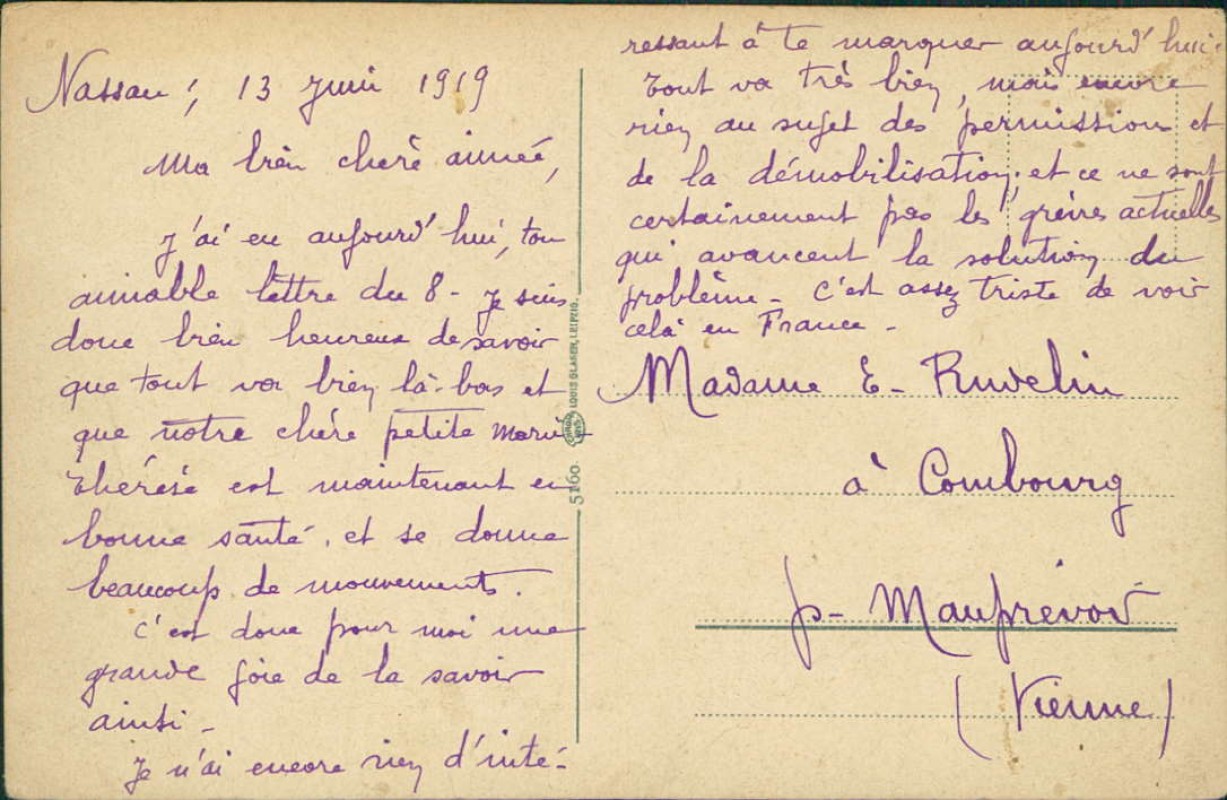 Nassau, 13 Juin 1919
Ma bien cherè aimée,
J'ai eu aujourd'hui, ton
aimable lettre du 8 - Je suis
donc bien heureux de savoir
que tout va bien là-bas et
que notre chére petite Marie
Thérésè est maintenant en
bonne santé, et se donne
beaucoup de mouvements.
C'est donc pour moi une
grande joie de la savoir
ainsi -
Je n'ai encore rien d'inté-
ressant à te marquer aujourd'hui.
Tout va très bien, mais encore
rien au sujet des permissions et
de la démobilisation, et ce ne sont
certainement pas les grèves actuelles
qui avancent la solution du
problème - C'est assez triste de voir
celà en France -
Madame E - Ruvelin
à Combourg
p - Mauprévoir
(Vienne)
5160. LOUIS GLASER, LEIPZIG.